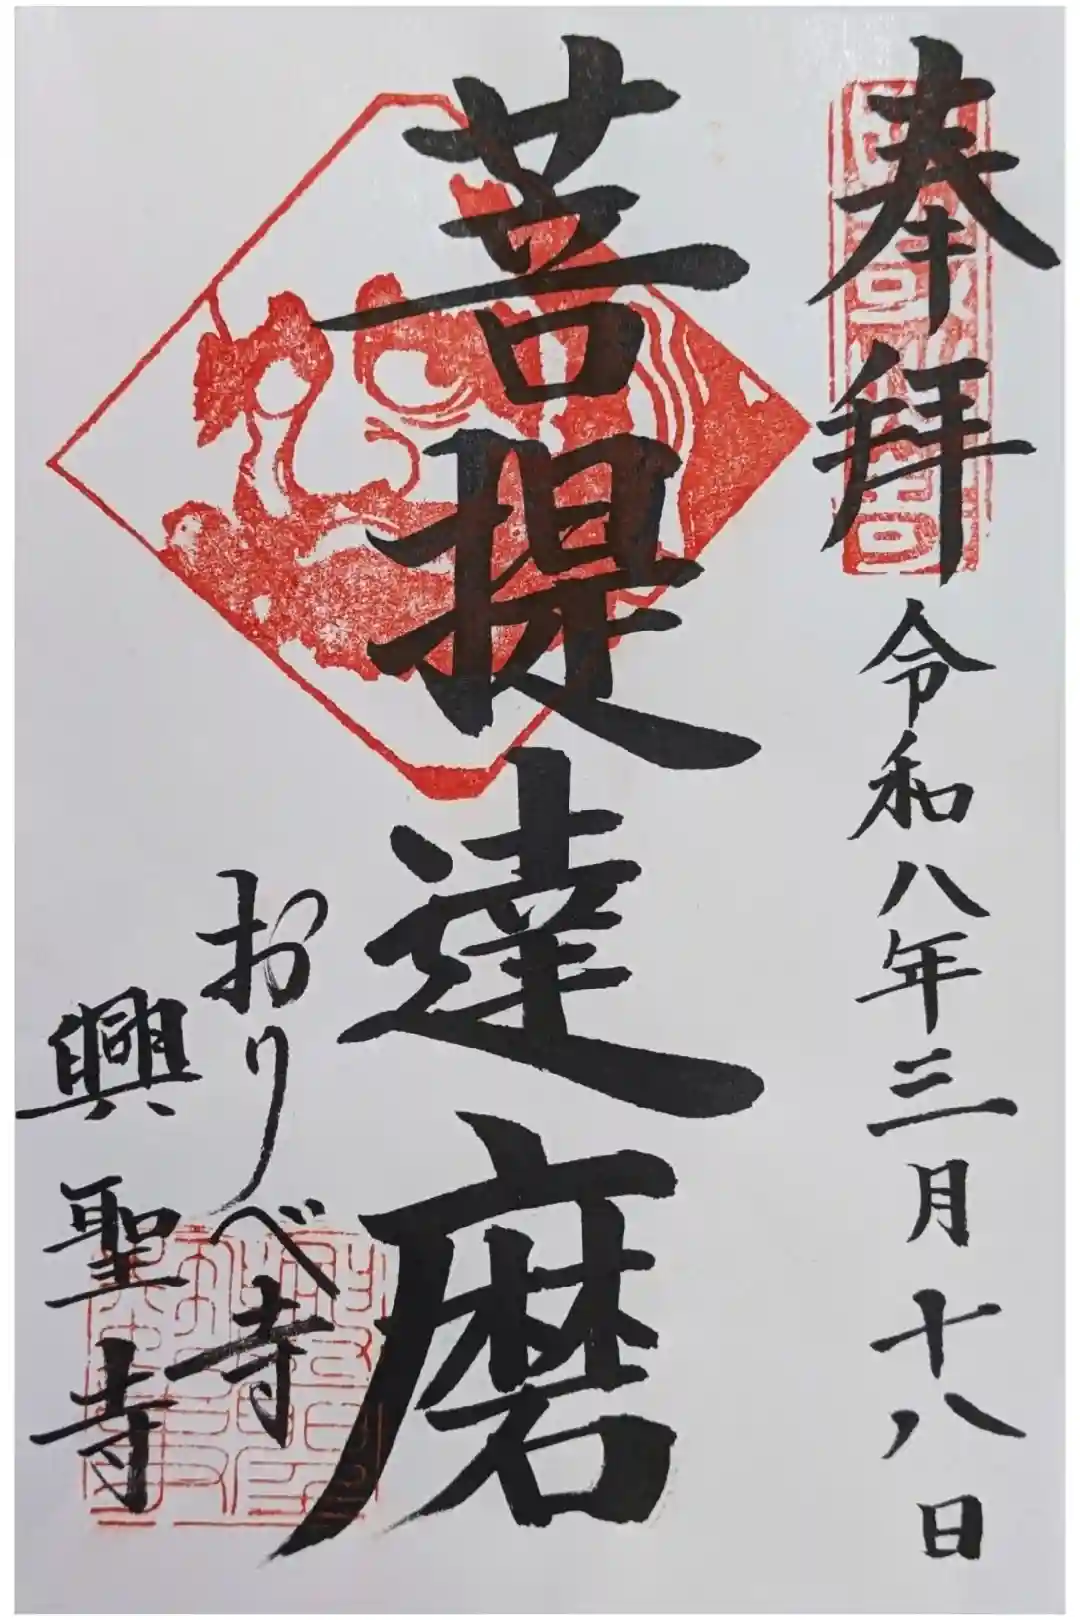 奉拝
令和八年三月十八日
菩提達磨
おりべ寺
興聖寺